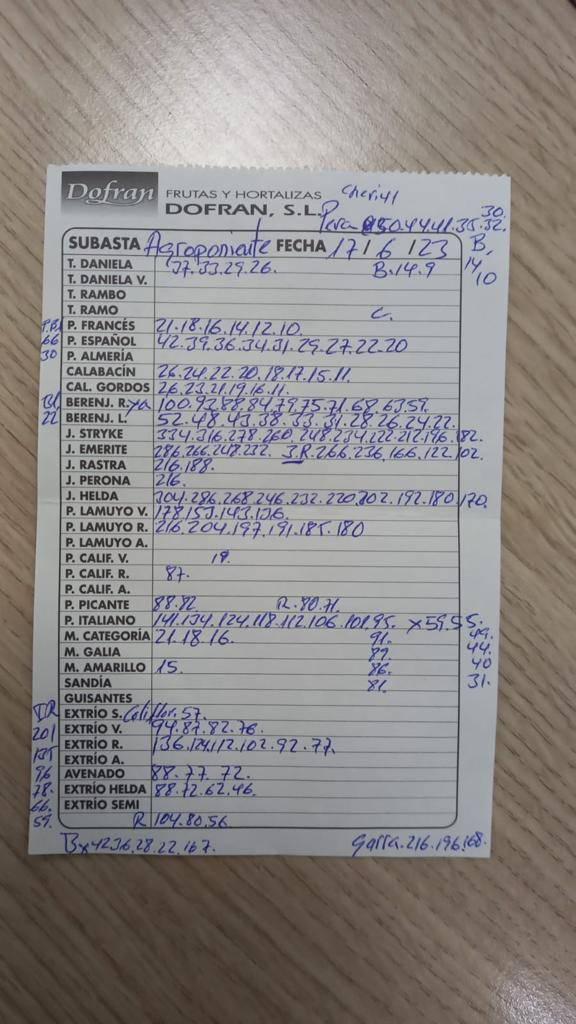 Dofran FRUTAS Y HORTALIZAS
DOFRAN, S.L.
Pera 50.44.41.35.32.
30.
SUBASTA Agroponiente FECHA 17/6/23 B.
T. DANIELA 37.33.29.26. B.14.9
14
10
T. DANIELA V.
T. RAMBO
T. RAMO C.
P. FRANCÉS 21.18.16.14.12.10.
66 P. ESPAÑOL 42.39.36.34.31.29.27.22.20
30 P. ALMERÍA
CALABACÍN 26.24.22.20.18.17.15.11.
CAL. GORDOS 26.23.21.19.16.11.
BERENJ. R. 100.93.88.84.79.75.71.68.63.59.
22 BERENJ. L. 52.48.43.38.33.31.28.26.24.22.
J. STRYKE 334.316.278.260.248.234.222.212.196.182.
J. EMERITE 286.266.248.232. J.R.266.236.166.122.102.
J. RASTRA 216.188.
J. PERONA 216.
J. HELDA 304.286.268.246.232.220.202.192.180.170.
P. LAMUYO V. 178.153.143.136.
P. LAMUYO R. 216.204.197.191.185.180
P. LAMUYO A.
P. CALIF. V. 19.
P. CALIF. R. 87.
P. CALIF. A.
P. PICANTE 88.82 R.80.71.
P. ITALIANO 141.134.124.118.112.106.101.95. x59.55.
M. CATEGORÍA 21.18.16. 91. 49.
M. GALIA 89. 44.
M. AMARILLO 15. 86. 40
SANDÍA 81. 31.
GUISANTES
EXTRÍO S. Coliflor.57.
201 EXTRÍO V. 94.87.82.76.
EXTRÍO R. 136.124.112.102.92.77.
EXTRÍO A.
96 AVENADO 88.77.72.
78. EXTRÍO HELDA 88.72.62.46.
66. EXTRÍO SEMI
59. R 104.80.56.
Garra.216.196.168.